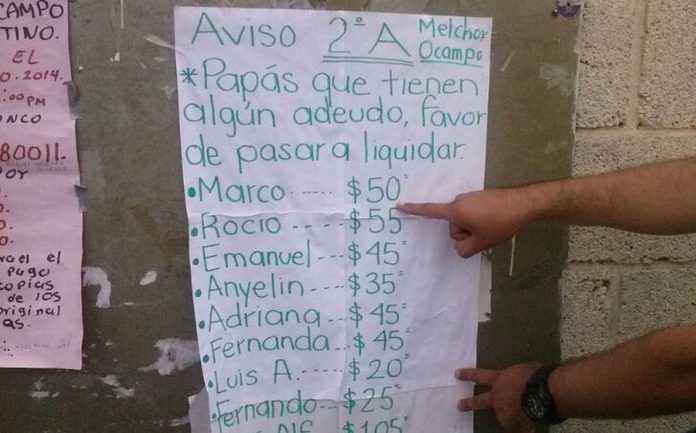 CAMPO
TINO.
EL
0.2014.
:00 PM
NCO
80011.
POR
el
Pago
copias
de los
original
as.
Aviso 2° A Melchor
Ocampo
*Papás que tienen
algún adeudo, favor
de pasar a liquidar.
•Marco ..... $50=
•Rocio ---- $55
•Emanuel --- $45=
•Anyelin --- $35=
•Adriana --- $45=
•Fernanda.. $45=
•Luis A. ----- $20=
•Fernando -- $25=
$105